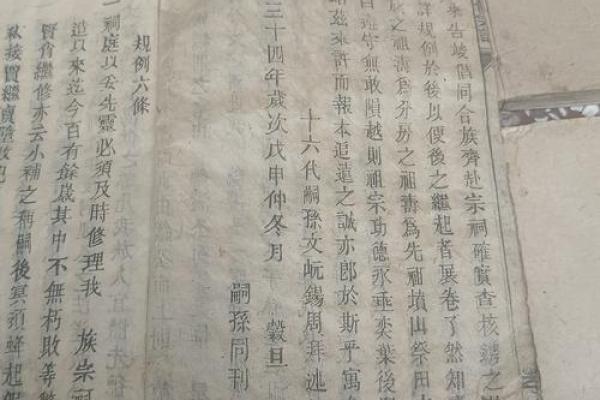 來告竣僭同合族齊赴宗祠確實查核
詳規例於後以便後之繼起者展卷了然知
之祖淸爲分房之祖濤爲先祖墳山祭田
班守無敢隕越則祖宗功德永垂奕葉後
茲來許而報本追遠之誠亦郎於斯乎寓
十六代嗣孫文岏錫周拜述
三十四年歲次戊申仲冬月 穀旦
嗣孫同刊
規例六條
一祠庭以妥先靈必須及時修理我 族宗
造以來迄今百有餘歲其中不無朽敗等
賢肯繼修亦云小補之稱嗣後冥頑蜂起